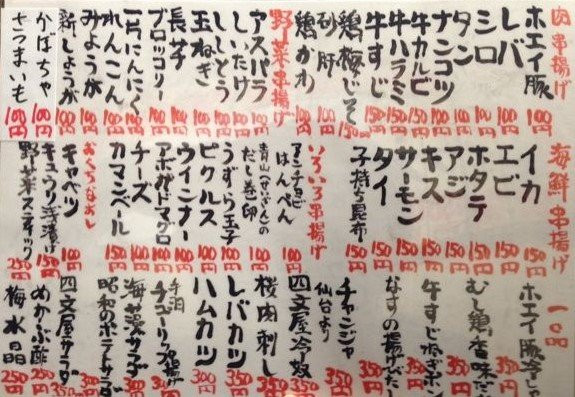 肉串揚げ
ホエイ豚 100円
レバ 100円
シロ 100円
タン 100円
ナンコツ 100円
牛カルビ 150円
牛ハラミ 150円
牛すじ 150円
鶏梅じそ 150円
砂肝 100円
鶏かわ 100円
野菜串揚げ
アスパラ 100円
しいたけ 100円
ししとう 100円
玉ねぎ 100円
長芋 100円
ブロッコリー 100円
一片にんにく 100円
れんこん 100円
みょうが 100円
新しょうが 100円
かぼちゃ 100円
さつまいも 100円
海鮮串揚げ
イカ 150円
エビ 150円
ホタテ 150円
アジ 150円
キス 150円
サーモン 150円
タイ 150円
子持ち昆布 150円
いろいろ串揚げ
アンチョビはんぺん 100円
青山さんのだし巻卵 100円
うずら玉子 100円
ピクルス 100円
ウインナー 100円
アボガドマグロ 150円
チーズ 100円
カマンベール 150円
おくちなおし
キャベツ 100円
キュウリ浅漬け 150円
野菜スティック 250円
一品
ホエイ豚冷しゃ
むし鶏香味だ
牛すじねぎポン
なすの揚げびたし
チャンジャ
仙台より
四文屋冷奴 350円
桜肉刺し 350円
レバカツ 350円
ハムカツ 300円
手羽チューリップ揚げ
海藻サラダ 350円
昭和のポテトサラダ
四文屋サラダ 350円
めかぶ酢 250円
梅水晶 250円